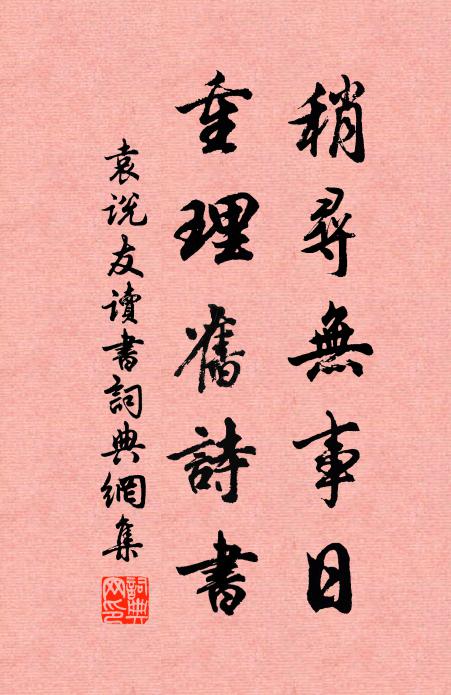 稍尋無事日
重理舊詩書
袁说友讀書詞典網集
詞典网印